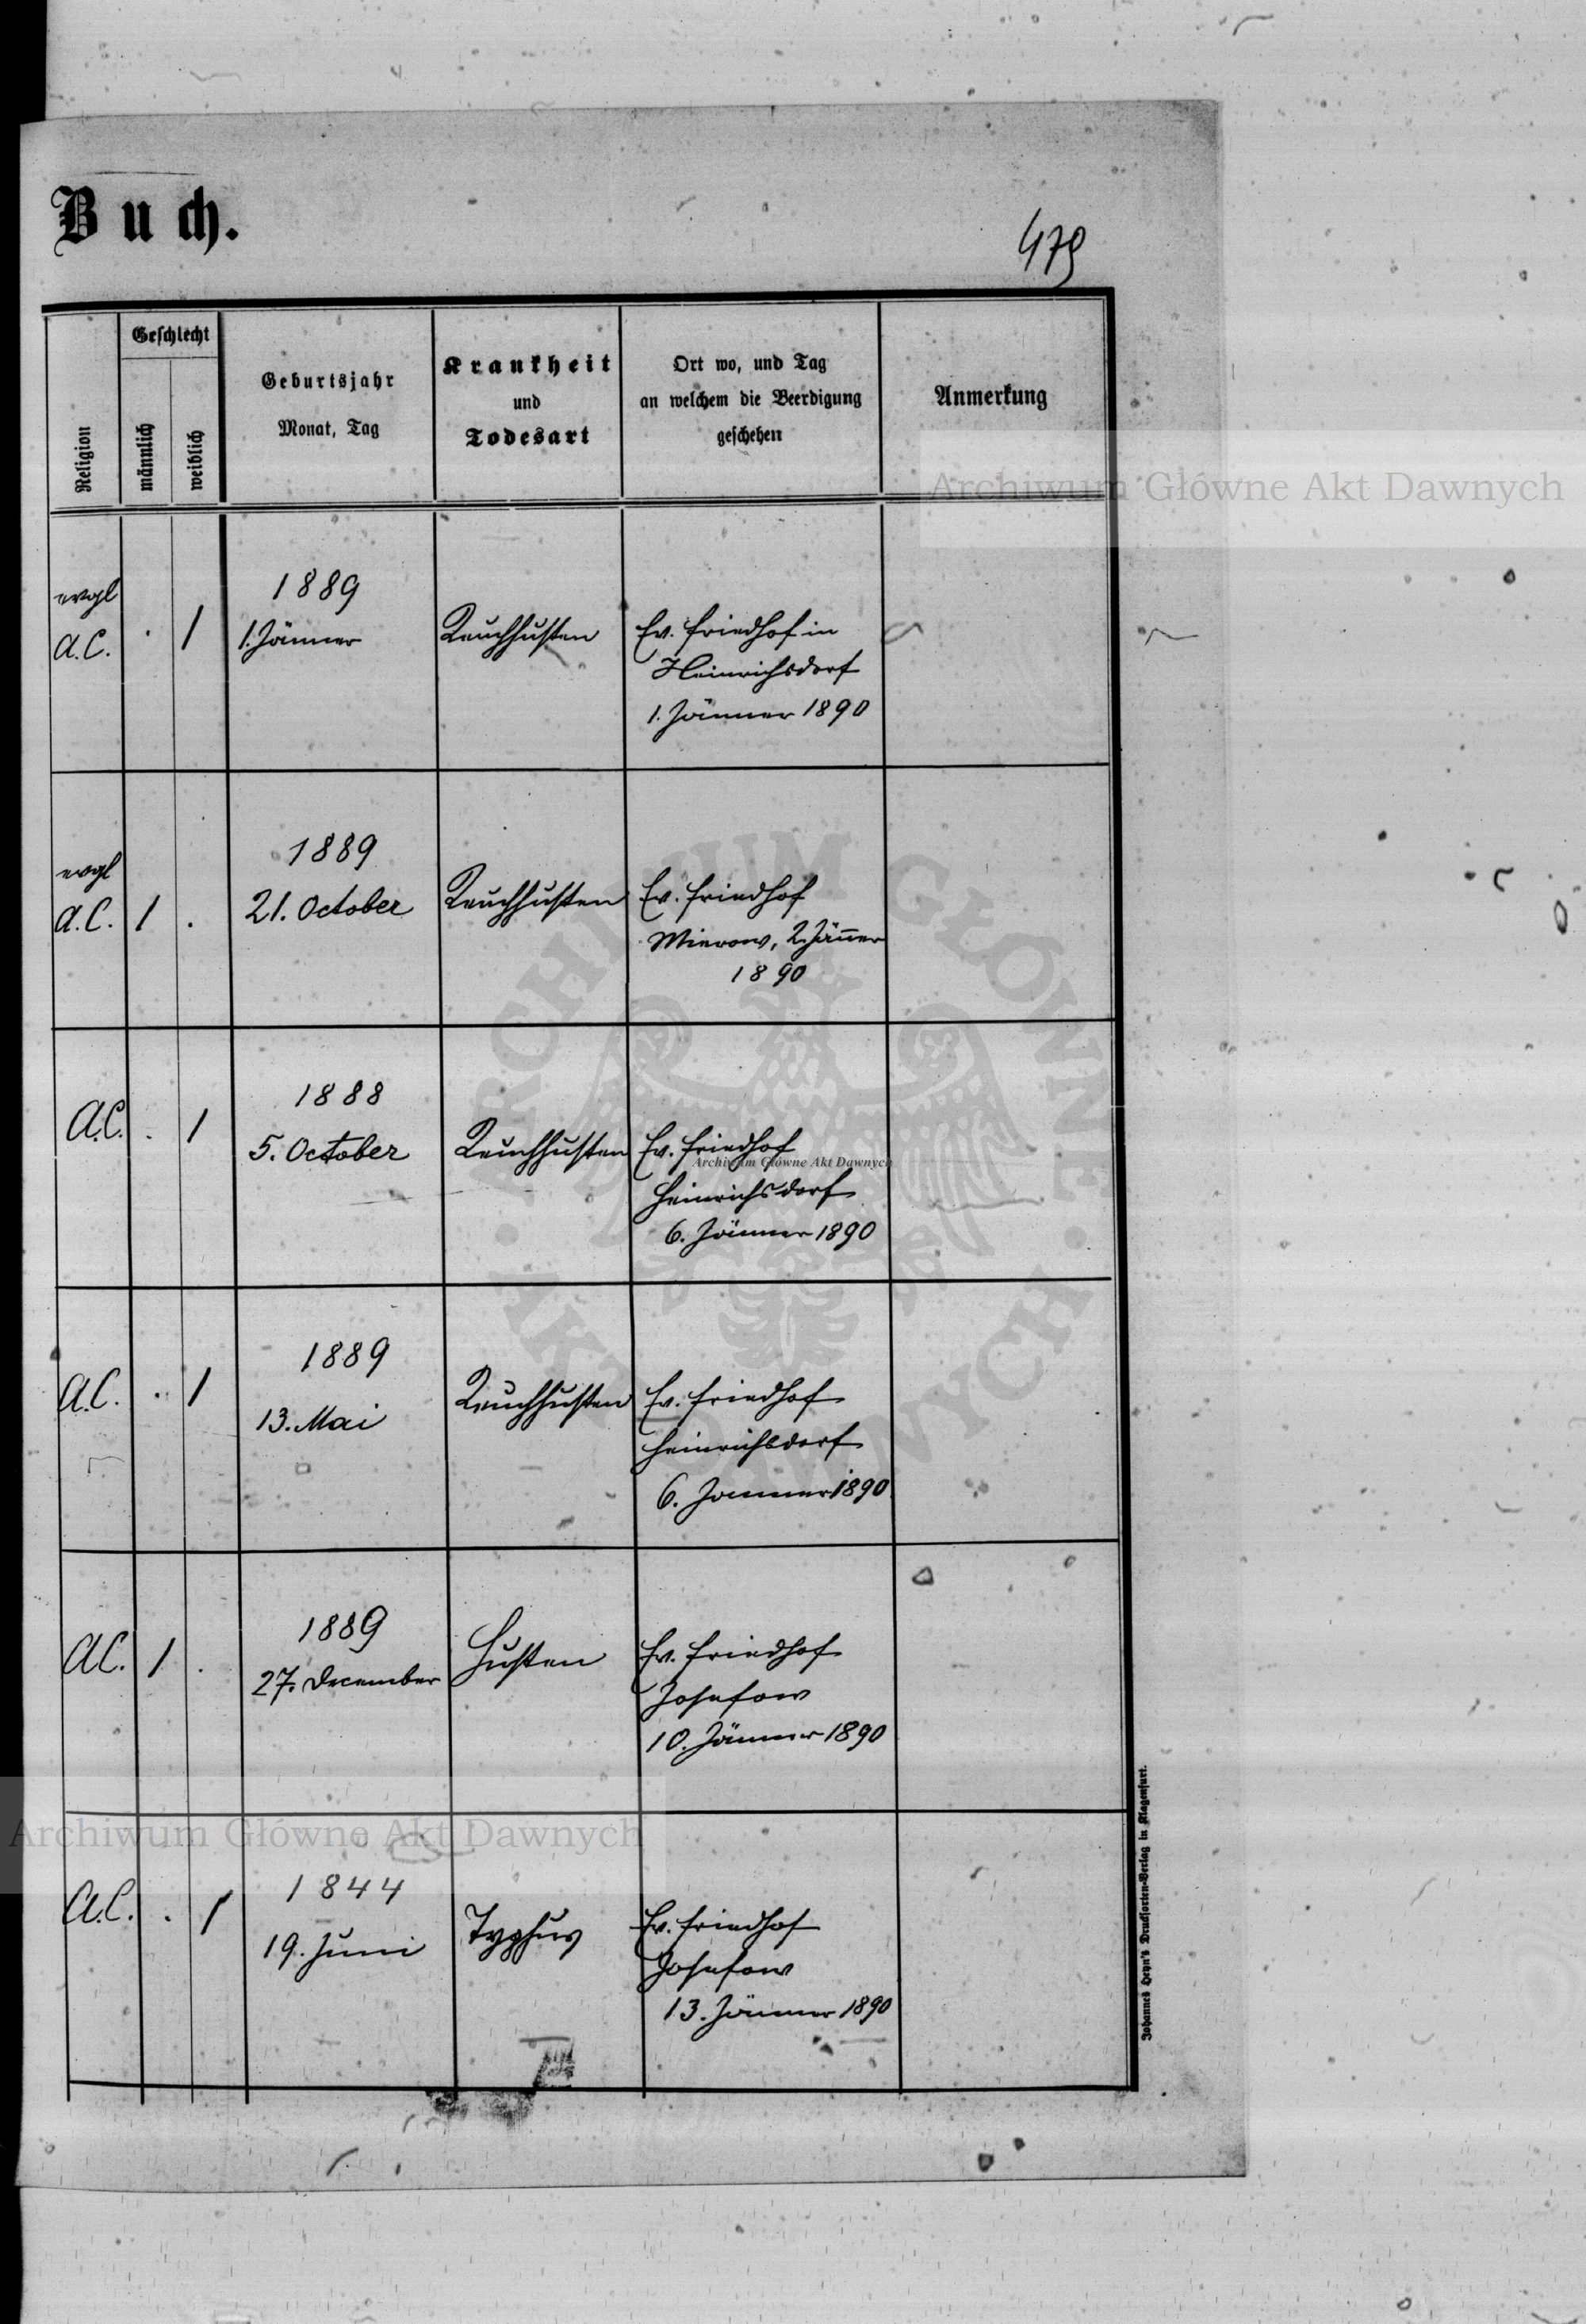 Buch.
479
Religion
Geschlecht
männlich
weiblich
Geburtsjahr
Monat, Tag
Krankheit
und
Todesart
Ort wo, und Tag
an welchem die Beerdigung
geschehen
Anmerkung
Archiwum Główne Akt Dawnych
evgl
A.C.
. 1
1889
1. Jänner
Keuchhusten
Ev. Friedhof in
Heinrichsdorf
1. Jänner 1890
evgl
A.C.
1 .
1889
21. October
Keuchhusten
Ev. Friedhof
Mierow, 2. Jänner
1890
A.C.
. 1
1888
5. October
Keuchhusten
Ev. Friedhof
Archiwum Główne Akt Dawnych
Heinrichsdorf
6. Jänner 1890
A.C.
. 1
1889
13. Mai
Keuchhusten
Ev. Friedhof
Heinrichsdorf
6. Jänner 1890
A.C.
1 .
1889
27. December
Husten
Ev. Friedhof
Josefow
10. Jänner 1890
Archiwum Główne Akt Dawnych
A.C.
. 1
1844
19. Juni
Typhus
Ev. Friedhof
Josefow
13. Jänner 1890
Johannes Heyn's Drucksorten-Verlag in Klagenfurt.
ARCHIWUM GŁÓWNE AKT DAWNYCH